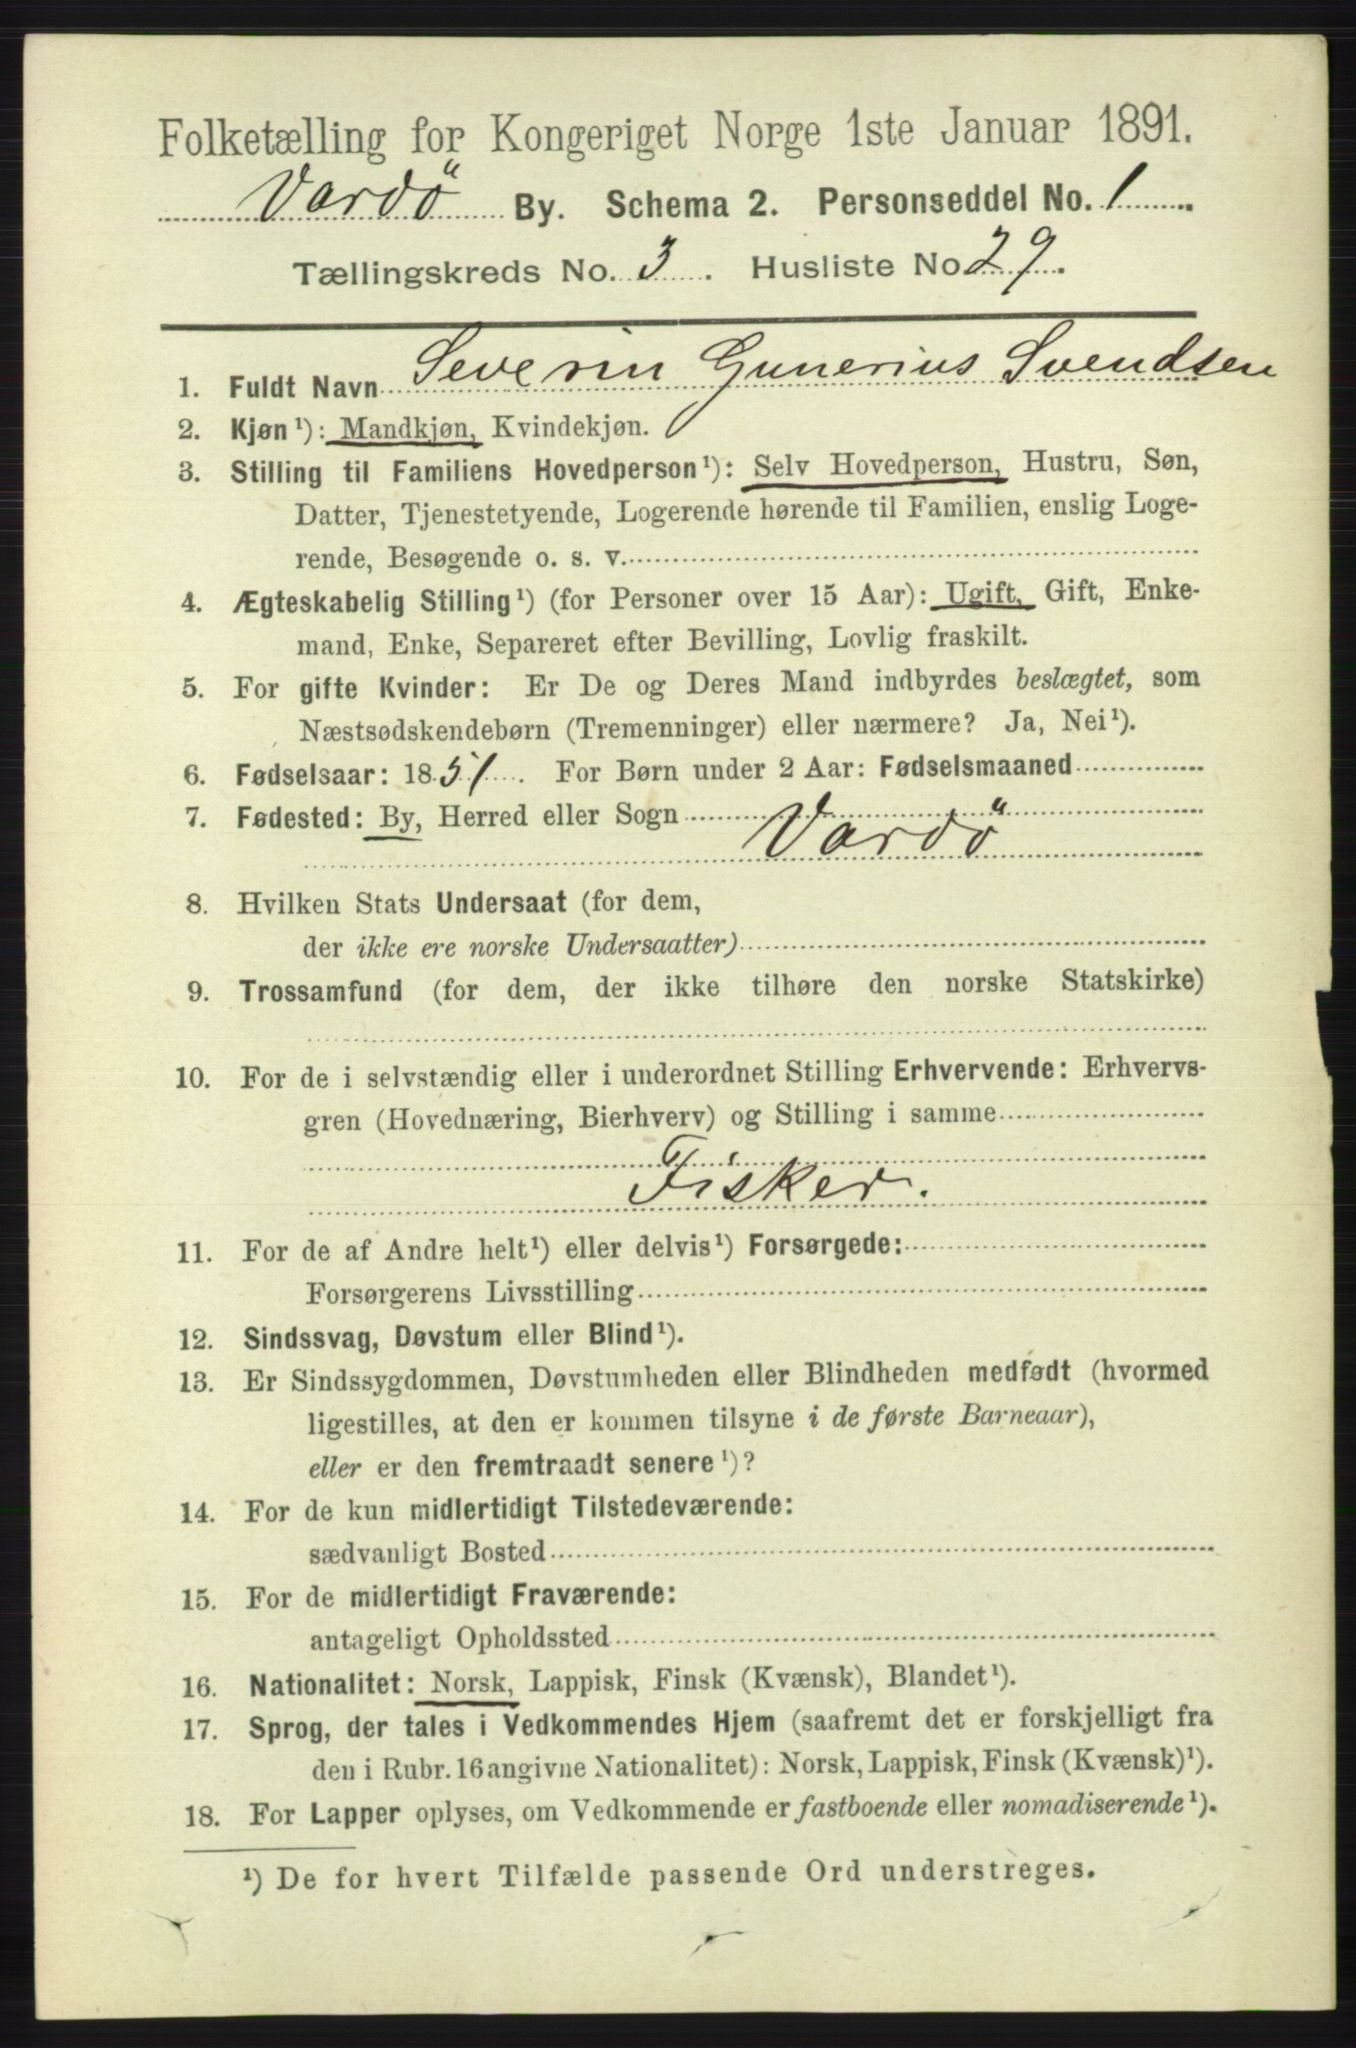 Folketælling for Kongeriget Norge 1ste Januar 1891.
Vardö By. Schema 2. Personseddel No. 1
Tællingskreds No. 3. Husliste No 29.
1. Fuldt Navn Severin Gunerius Svendsen
2. Kjøn¹): Mandkjøn, Kvindekjøn.
3. Stilling til Familiens Hovedperson¹): Selv Hovedperson, Hustru, Søn,
Datter, Tjenestetyende, Logerende hørende til Familien, enslig Loge-
rende, Besøgende o. s. v.
4. Ægteskabelig Stilling¹) (for Personer over 15 Aar): Ugift, Gift, Enke-
mand, Enke, Separeret efter Bevilling, Lovlig fraskilt.
5. For gifte Kvinder: Er De og Deres Mand indbyrdes beslægtet, som
Næstsødskendebørn (Tremenninger) eller nærmere? Ja, Nei¹).
6. Fødselsaar: 1851. For Børn under 2 Aar: Fødselsmaaned
7. Fødested: By, Herred eller Sogn
Vardö
8. Hvilken Stats Undersaat (for dem,
der ikke ere norske Undersaatter)
9. Trossamfund (for dem, der ikke tilhøre den norske Statskirke)
10. For de i selvstændig eller i underordnet Stilling Erhvervende: Erhvervs-
gren (Hovednæring, Bierhverv) og Stilling i samme
Fisker.
11. For de af Andre helt¹) eller delvis¹) Forsørgede:
Forsørgerens Livsstilling
12. Sindssvag, Døvstum eller Blind¹).
13. Er Sindssygdommen, Døvstumheden eller Blindheden medfødt (hvormed
ligestilles, at den er kommen tilsyne i de første Barneaar),
eller er den fremtraadt senere¹)?
14. For de kun midlertidigt Tilstedeværende:
sædvanligt Bosted
15. For de midlertidigt Fraværende:
antageligt Opholdssted
16. Nationalitet: Norsk, Lappisk, Finsk (Kvænsk), Blandet¹).
17. Sprog, der tales i Vedkommendes Hjem (saafremt det er forskjelligt fra
den i Rubr. 16 angivne Nationalitet): Norsk, Lappisk, Finsk (Kvænsk)¹).
18. For Lapper oplyses, om Vedkommende er fastboende eller nomadiserende¹).
¹) De for hvert Tilfælde passende Ord understreges.